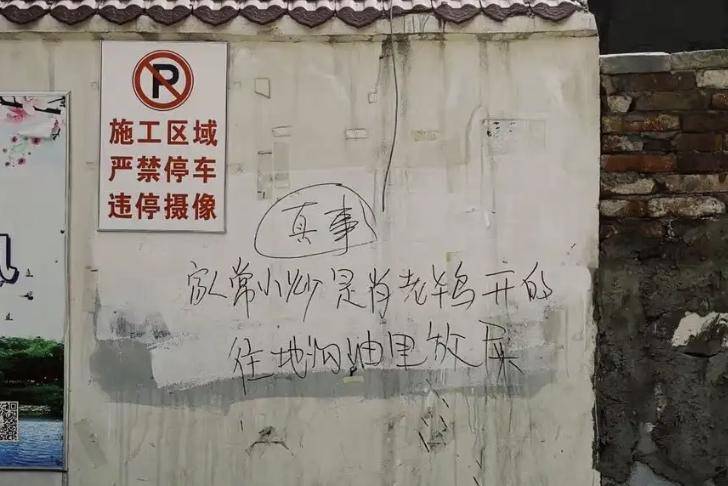 施工区域
严禁停车
违停摄像
真事
家常小炒是肖老鸹开的
往地沟油里放屎